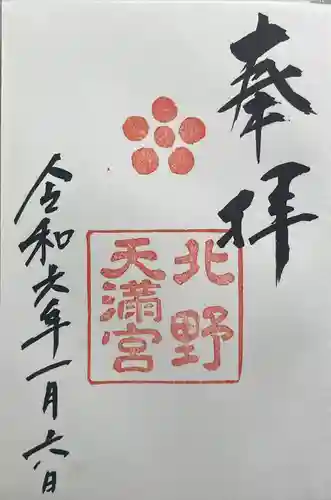 奉拝
北野
天満宮
令和六年一月十八日